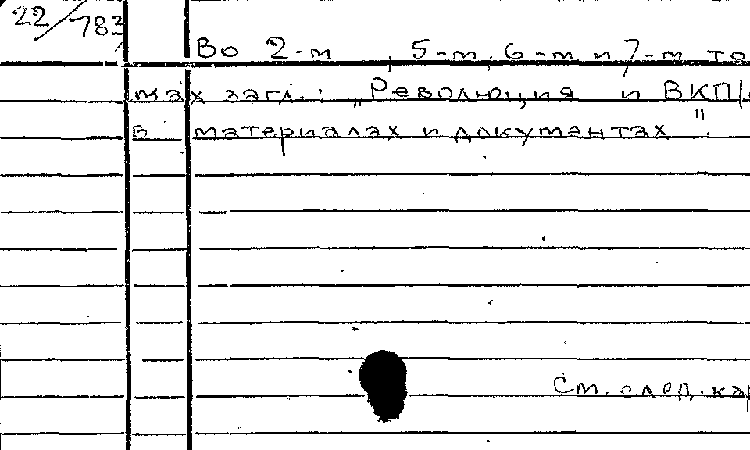 22/783
Во 2-м, 5-м, 6-м и 7-м то
мах загл.: „Революция и ВКП/
в материалах и документах".
См. след. кар